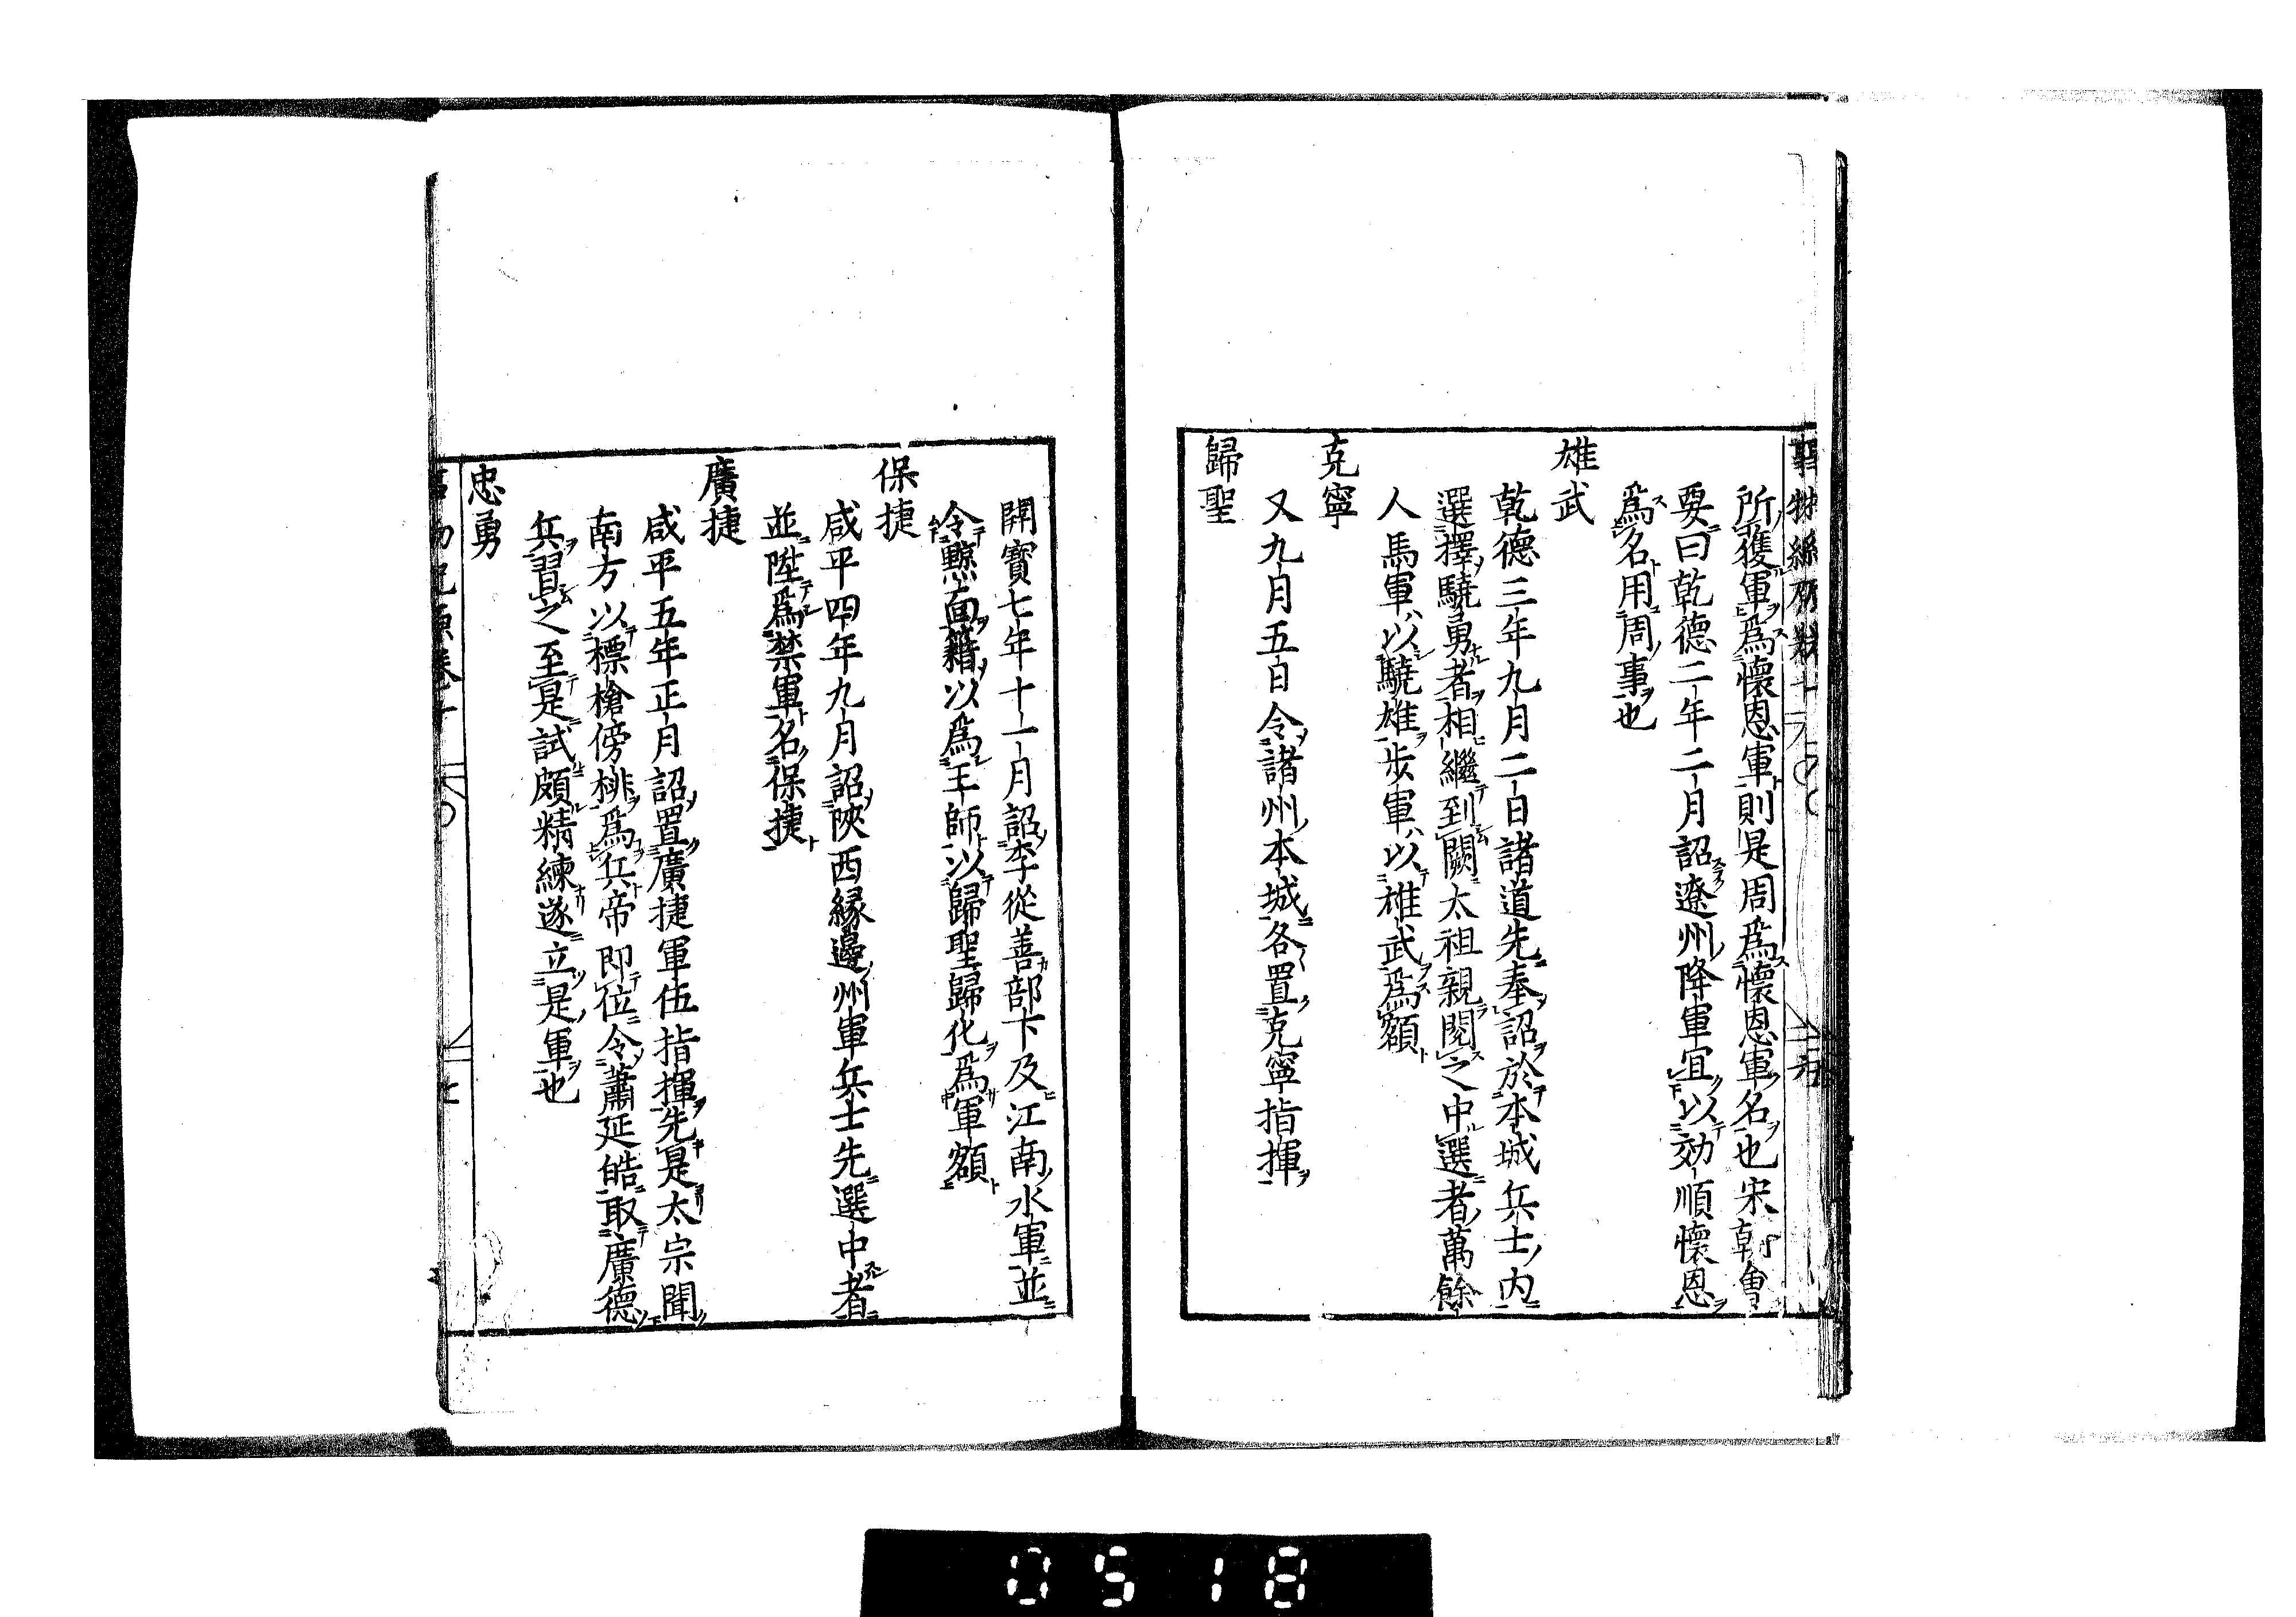 所獲軍爲懷恩軍則是周爲懷恩軍名也宋朝會
要曰乾德二年二月詔遼州降軍宜以効順懷恩
爲名用周事也
雄武
乾德三年九月二日諸道先奉詔於本城兵士内
選擇驍勇者相繼到闕太祖親閱之中選者萬餘
人馬軍以驍雄步軍以雄武爲額
克寧
又九月五日令諸州本城各置克寧指揮
歸聖
開寳七年十一月詔李從善部下及江南水軍並
令黥面籍以爲王師以歸聖歸化爲軍額
保捷
咸平四年九月詔陝西緣邊州軍兵士先選中者
並陞爲禁軍名保捷
廣捷
咸平五年正月詔置廣捷軍伍指揮先是太宗聞
南方以標槍傍桃爲兵帝即位令蕭延皓取廣德
兵習之至是試頗精練遂立是軍也
忠勇
0518